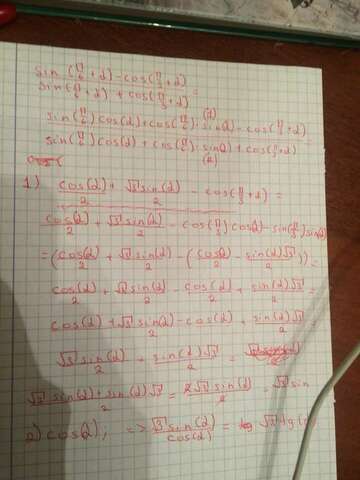 sin(π/6 + α) - cos(π/3 + α)
sin(π/6 + α) + cos(π/3 + α) =
sin(π/6) cos(α) + cos(π/6) · sin(α) - cos(π/3 + α)
sin(π/6) cos(α) + cos(π/6) · sin(α) + cos(π/3 + α) =
1) cos(α)/2 + √3 sin(α)/2 - cos(π/3 + α) =
cos(α)/2 + √3 sin(α)/2 - cos(π/3) cos(α) - sin(π/3) sin(α)
= (cos(α)/2 + √3 sin(α)/2 - (cos(α)/2 - sin(α)√3/2)) =
cos(α)/2 + √3 sin(α)/2 - cos(α)/2 + sin(α)√3/2 =
cos(α) + √3 sin(α) - cos(α)/2 + sin(α)√3/2 =
√3 sin(α)/2 + sin(α)√3/2 =
√3 sin(α) + sin(α)√3/2 = 2√3 sin(α)/2 = √3 sin
2) cos(α); => √3 sin(α)/cos(α) = √3 tg(α)